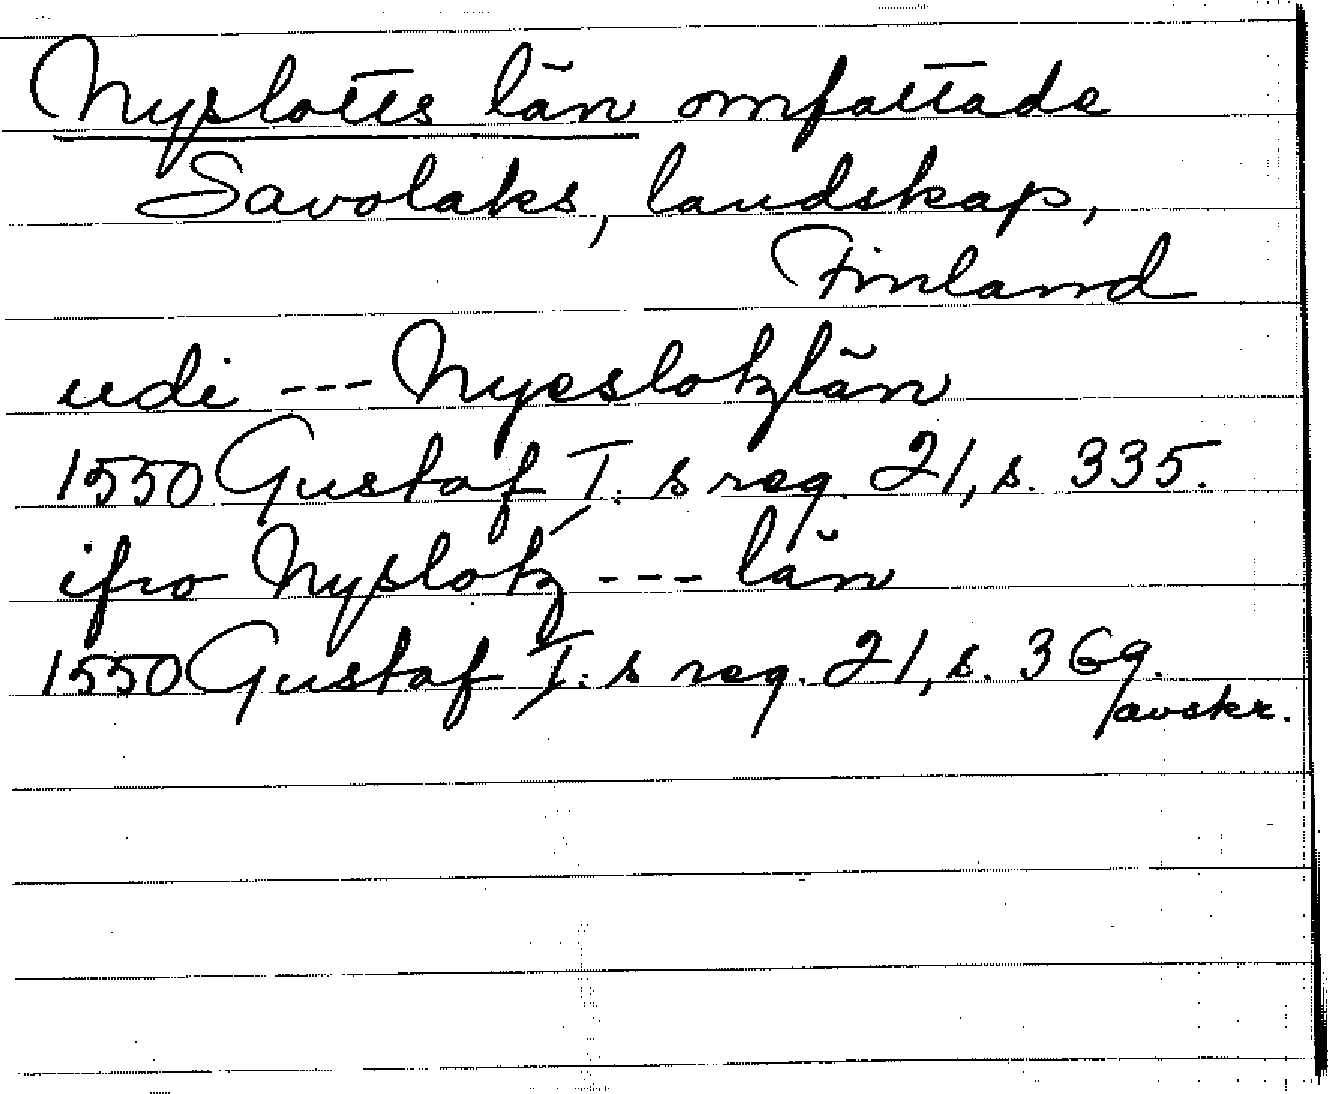 Nyslotts län omfattade
Savolaks, landskap,
Finland
udi --- Nyeslotzlän
1550 Gustaf I:s reg. 21, s. 335.
ifro Nyslotz --- län
1550 Gustaf I:s reg. 21, s. 369.
avskr.